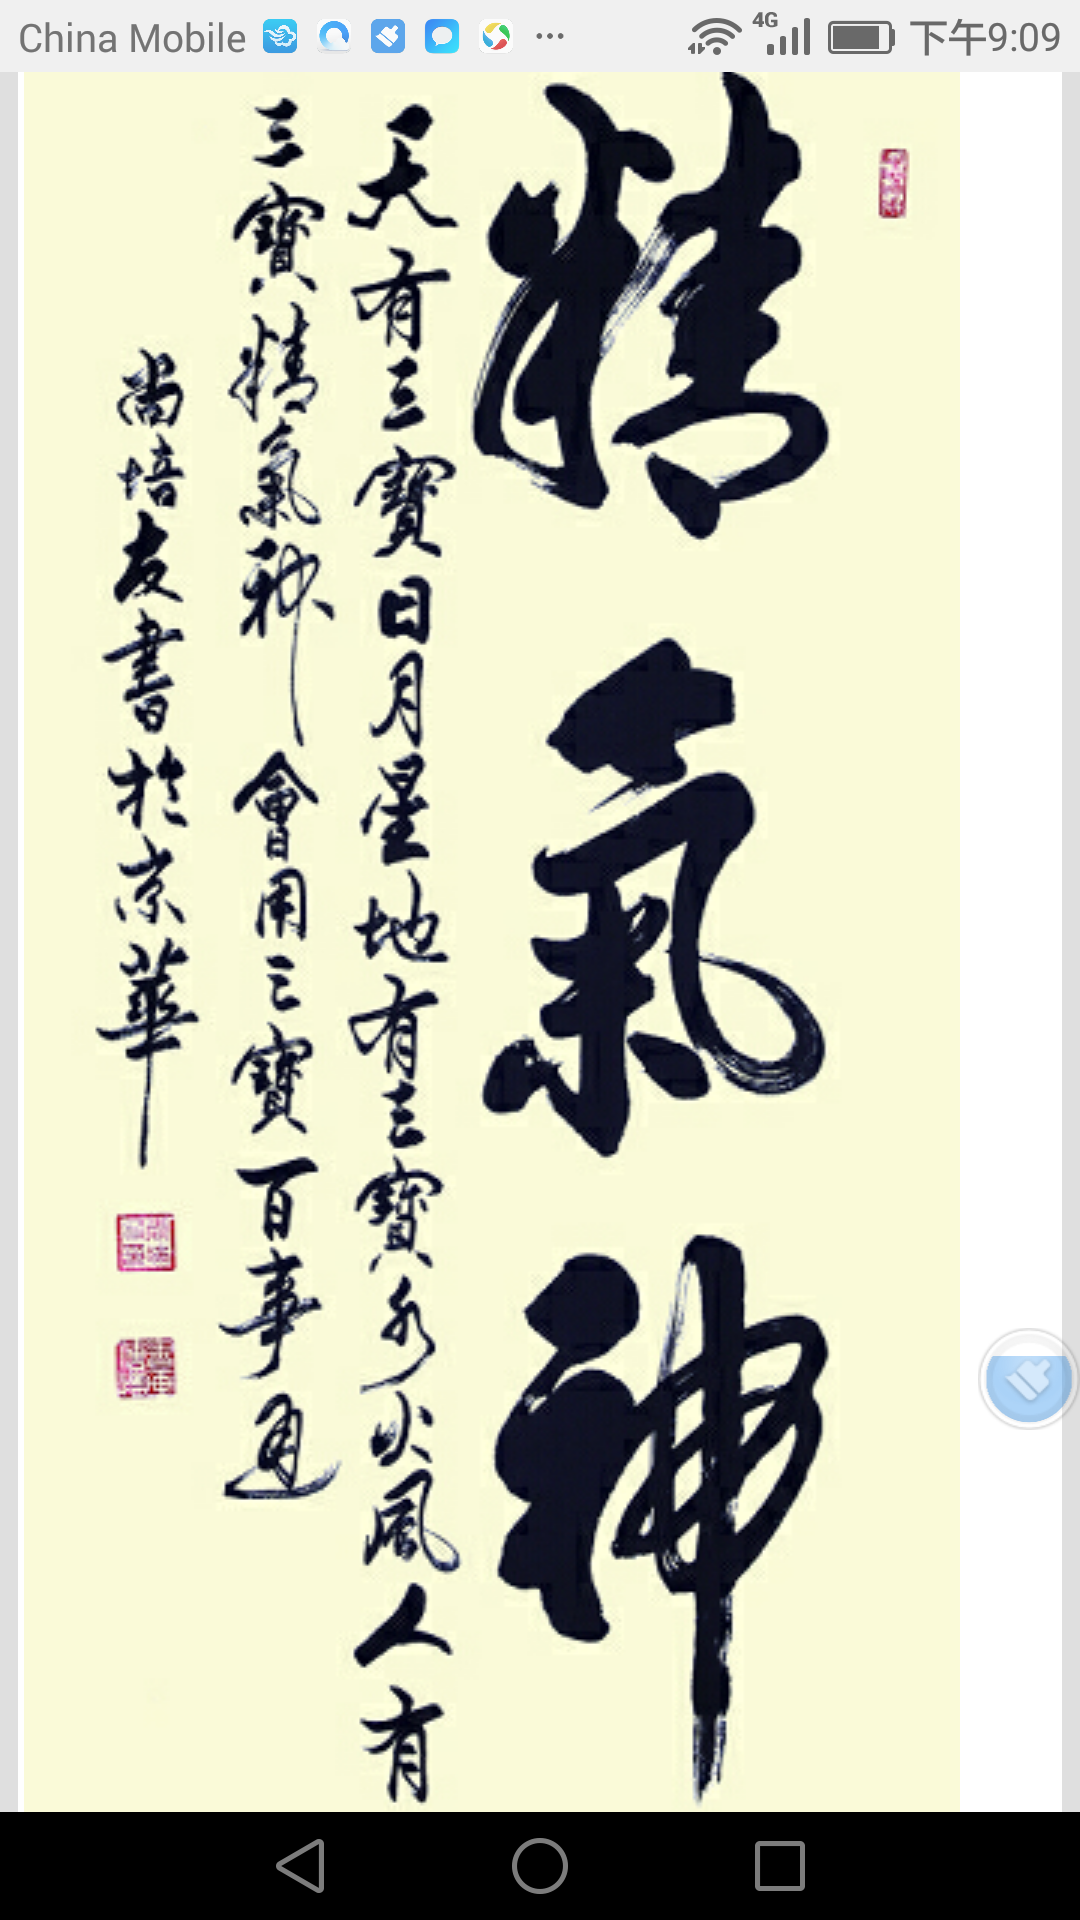 China Mobile
4G
下午9:09
精氣神
天有三寶日月星地有三寶水火風人有
三寶精氣神會用三寶百事通
尚培友書於京華